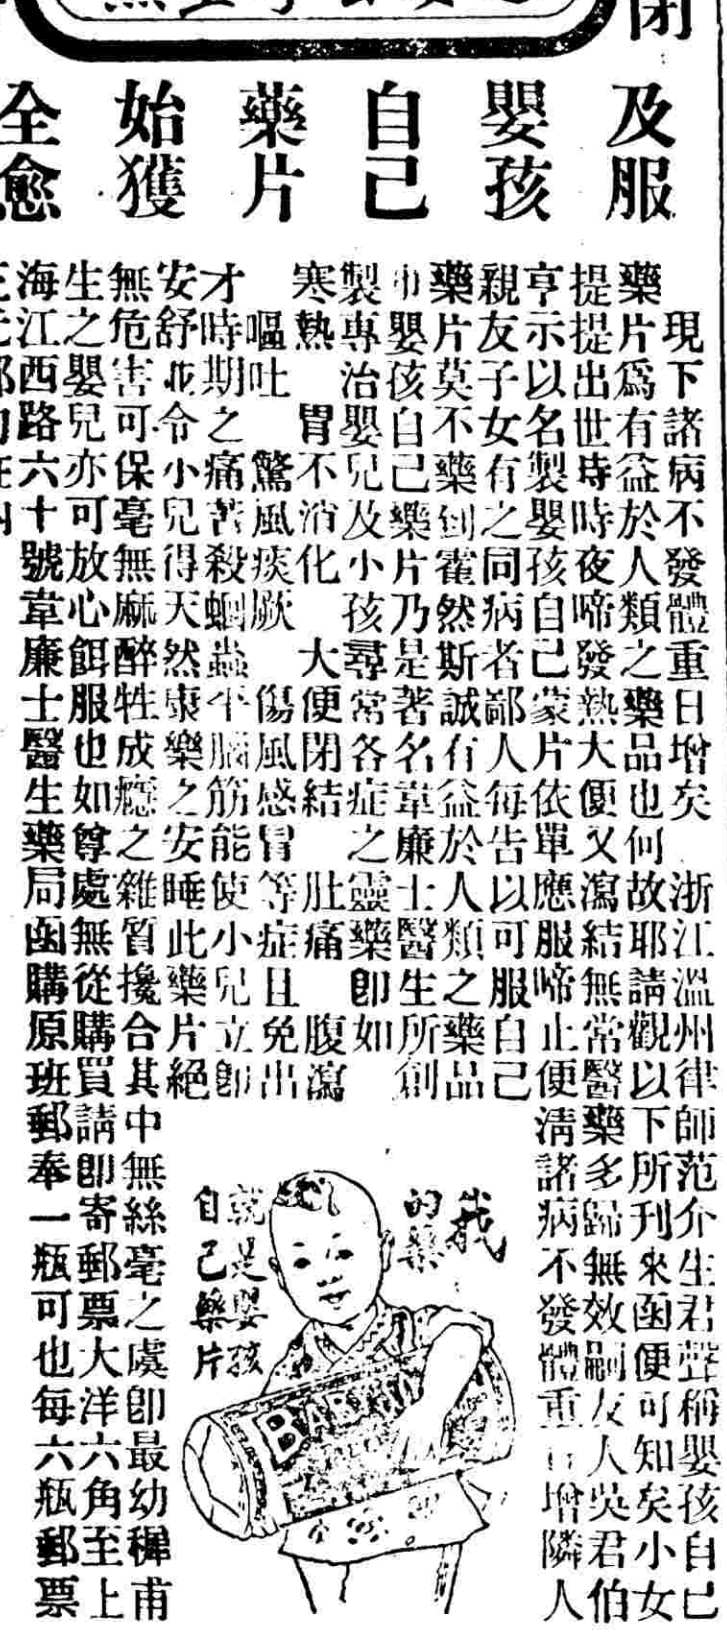 閉
及服
嬰孩
自己
藥片
始獲
全愈
現下諸病不發體重日增矣 浙江溫州律師范介生君聲稱嬰孩自己
藥片爲有益於人類之藥品也何故耶請觀以下所刊來函便可知矣小女
提提出世時時夜啼發熱大便又瀉結無常醫藥多歸無效嗣友人吳君伯
亨示以名製嬰孩自己蒙片依單應服啼止便淸諸病不發體重日增隣人
親友子女有之同病者鄙人每告以可服自己
藥片莫不藥到霍然斯誠有益於人類之藥品
嬰孩自己藥片乃是著名韋廉士醫生所創
製專治嬰兒及小孩尋常各症之靈藥卽如
寒熱 胃不消化 大便閉結 肚痛 腹瀉
嘔吐 驚風痰厥 傷風感冒等症且免出
才時期之痛苦殺蛔蟲平腦筋能使小兒立卽
安舒並令小兒得天然康樂之安睡此藥片絕
無危害可保毫無麻醉牲成癮之雜質攙合其中無絲毫之虞卽最幼穉甫
生之嬰兒亦可放心餌服也如尊處無從購買請卽寄郵票大洋六角至上
海江西路六十號韋廉士醫生藥局函購原班郵奉一瓶可也每六瓶郵票
我
的藥
就是嬰孩
自己藥片